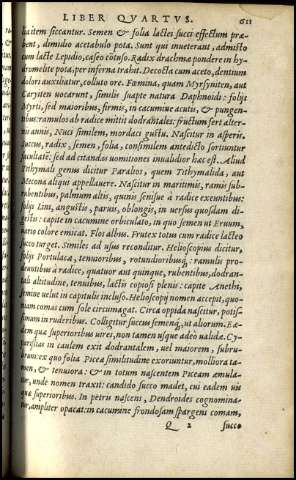 LIBER QVARTVS. 611
lia item siccantur. Semen & folia lactei succi effectum præ
bent, dimidio acetabulo pota. Sunt qui inueterant, admisto
cum lacte Lepidio, caseo cõtuso. Radix drachmæ pondere in hy
dromelite pota, per inferna trahit. Decocta cum aceto, dentium
dolori auxiliatur, colluto ore. Fœmina, quam Myrsiniten, aut
Caryiten uocarunt, similis suapte natura Daphnoidi: folijs
Myrti, sed maioribus, firmis, in cacumine acutis, & pungen-
tibus: ramulos ab radice mittit dodrantales: fructum fert alter-
nis annis, Nuci similem, mordaci gustu. Nascitur in asperis,
succus, radix, semen, folia, consimilem antedicto sortiuntur
facultatẽ: sed ad citandas uomitiones inualidior hac est. Aliud
Tithymali genus dicitur Paralios, quem Tithymalida, aut
Mecona aliqui appellauere. Nascitur in maritimis, ramis sub-
rubentibus, palmum altis, quinis senisue a radice exeuntibus:
folijs Lini, angustis, paruis, oblongis, in uersus quosdam di-
gestis: capite in cacumine orbiculato, in quo semen ut Eruum,
uario colore emicat. Flos albus. Frutex totus cum radice lacteo
succo turget. Similes ad usus reconditur. Helioscopius dicitur,
folijs Portulacæ, tenuioribus, rotundioribusq́;: ramulis pro-
deuntibus a radice, quatuor aut quinque, rubentibus, dodran-
tali altitudine, tenuibus, lactis copiosi plenis: capite Anethi,
semine uelut in capitulis incluso. Helioscopij nomen accepit, quo-
niam comas cum sole circumagat. Circa oppida nascitur, potis-
simum in ruderibus. Colligitur succus semenq́;, ut aliorum. Ea-
dem quæ superioribus uires, non tamen usque adeò ualidæ. Cy-
parissias in caulem exit dodrantalem, uel maiorem, subru-
brum: ex quo folia Piceæ similitudine exoriuntur, molliora ta-
men, & tenuiora: & in totum nascentem Piceam æmula-
tur, unde nomen traxit: candido succo madet, cui eadem uis
quæ superioribus. In petris nascens, Dendroides cognomina-
tur, ampliter opacat: in cacumine frondosam spargens comam,
Q 2 succo